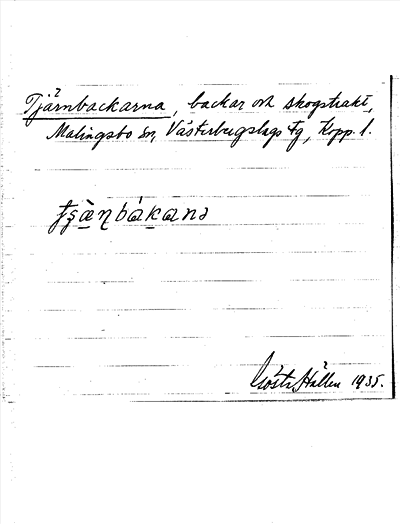 Tjärnbackarna, backar och skogstrakt,
Malingsbo sn, Västerbergslags tg, Kopp. l.
Gösta Hallén 1935.